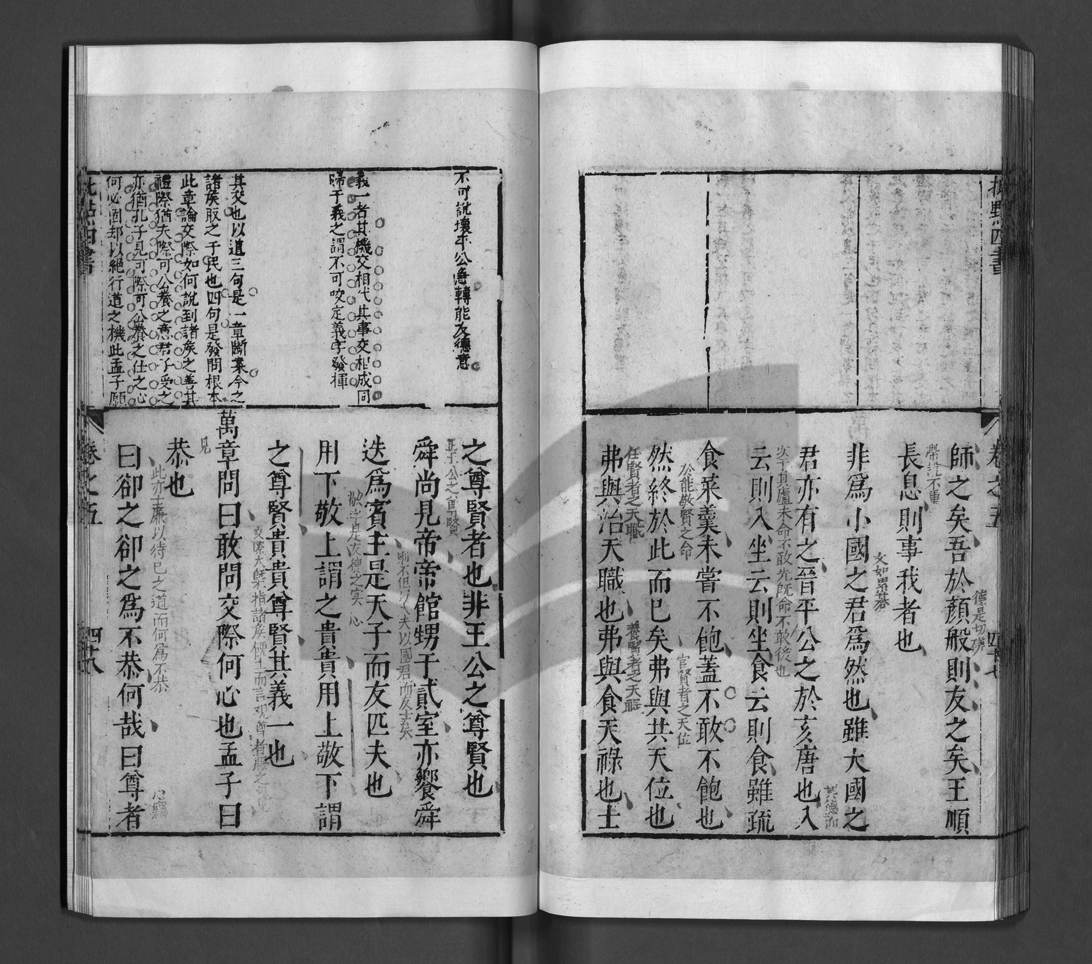 批點四書
卷之五
四十七
師之矣吾於顏般則友之矣王順
長息則事我者也
非為小國之君為然也雖大國之
君亦有之晉平公之於亥唐也入
云則入坐云則坐食云則食雖疏
食菜羹未嘗不飽蓋不敢不飽也
然終於此而已矣弗與共天位也
弗與治天職也弗與食天祿也士
不可說壞平公急轉能友德意
義一者其機交相代其事交相成同
歸于義之謂不可咬定義字發揮
其交也以道三句是一章斷案今之
諸侯取之于民也四句是發問根本
此章論交際如何說到諸侯之善其
禮際猶夫際可公養之意君子受之
亦猶孔子見可際可公養之仕之心
何必固却以絕行道之機此孟子願
之尊賢者也非王公之尊賢也
舜尚見帝帝館甥于貳室亦饗舜
迭為賓主是天子而友匹夫也
用下敬上謂之貴貴用上敬下謂
之尊賢貴貴尊賢其義一也
萬章問曰敢問交際何心也孟子曰
恭也
此亦棄以待已之道而何為不恭
曰卻之卻之為不恭何哉曰尊者
批點四書
卷之五
四十八